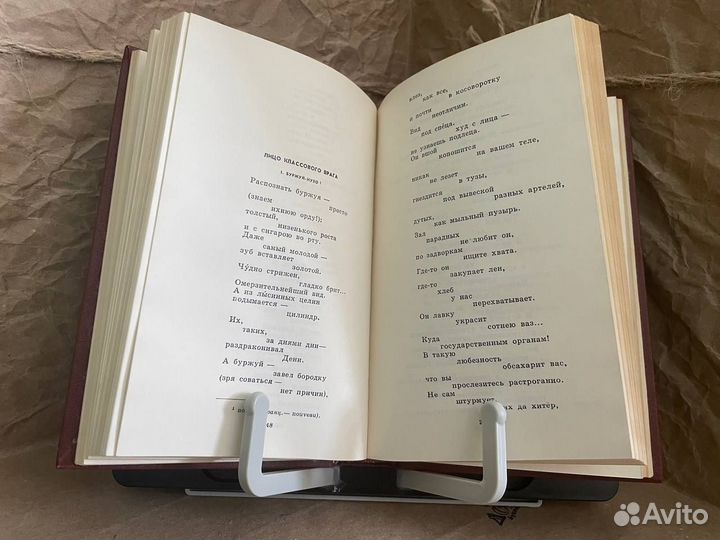 ЛИЦО КЛАССОВОГО ВРАГА
1. БУРЖУЙ-НУВО 1
Распознать буржуя —
просто
(знаем
ихнюю орду!):
толстый,
низенького роста
и с сигарою во рту.
Даже
самый молодой —
зуб вставляет
золотой.
Чу́дно стрижен,
гладко брит...
Омерзительнейший вид.
А из лысинных целин
подымается —
цилиндр.
Их,
таких,
за днями дни—
раздраконивал
Дени.
А буржуй —
завел бородку
(зря соваться —
нет причин),
nouveau).
48
влез,
как все,
в косоворотку
и почти
неотличим.
Вид
под спе́ца,
худ с лица —
не узнаешь подлеца.
Он вшой
копошится
на вашем теле,
никак
не лезет
в тузы,
гнездится
под вывеской
разных артелей,
дутых,
как мыльный пузырь.
Зал
парадных
не любит он,
по задворкам
ищите хвата.
Где-то он
закупает лен,
где-то
хлеб
у нас
перехватывает.
Он лавку
украсит
сотнею ваз...
Куда
государственным органам!
В такую
любезность
обсахарит вас,
что вы
прослезитесь растроганно.
Не сам
штурмует,
да хитёр,
Avito